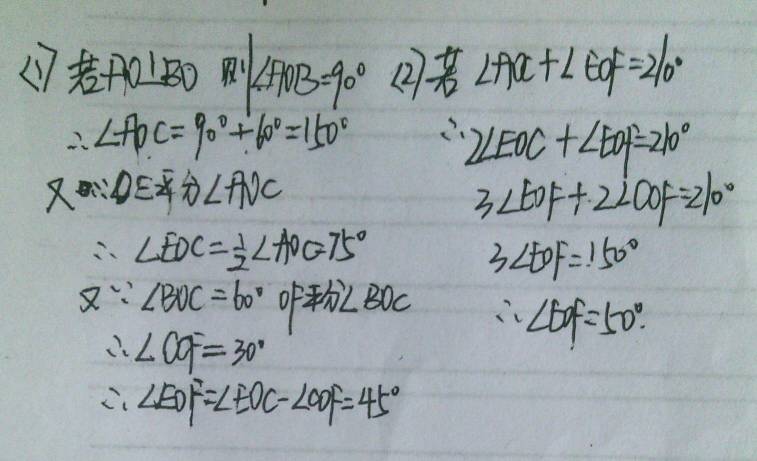 <1> 若AO⊥BO 则∠AOB=90°
∴∠AOC=90°+60°=150°
又∵OE平分∠AOC
∴∠EOC=½∠AOC=75°
又∵∠BOC=60° OF平分∠BOC
∴∠COF=30°
∴∠EOF=∠EOC-∠COF=45°
(2)若 ∠AOC+∠EOF=210°
∴2∠EOC+∠EOF=210°
3∠EOF+2∠COF=210°
3∠EOF=150°
∴∠EOF=50°.